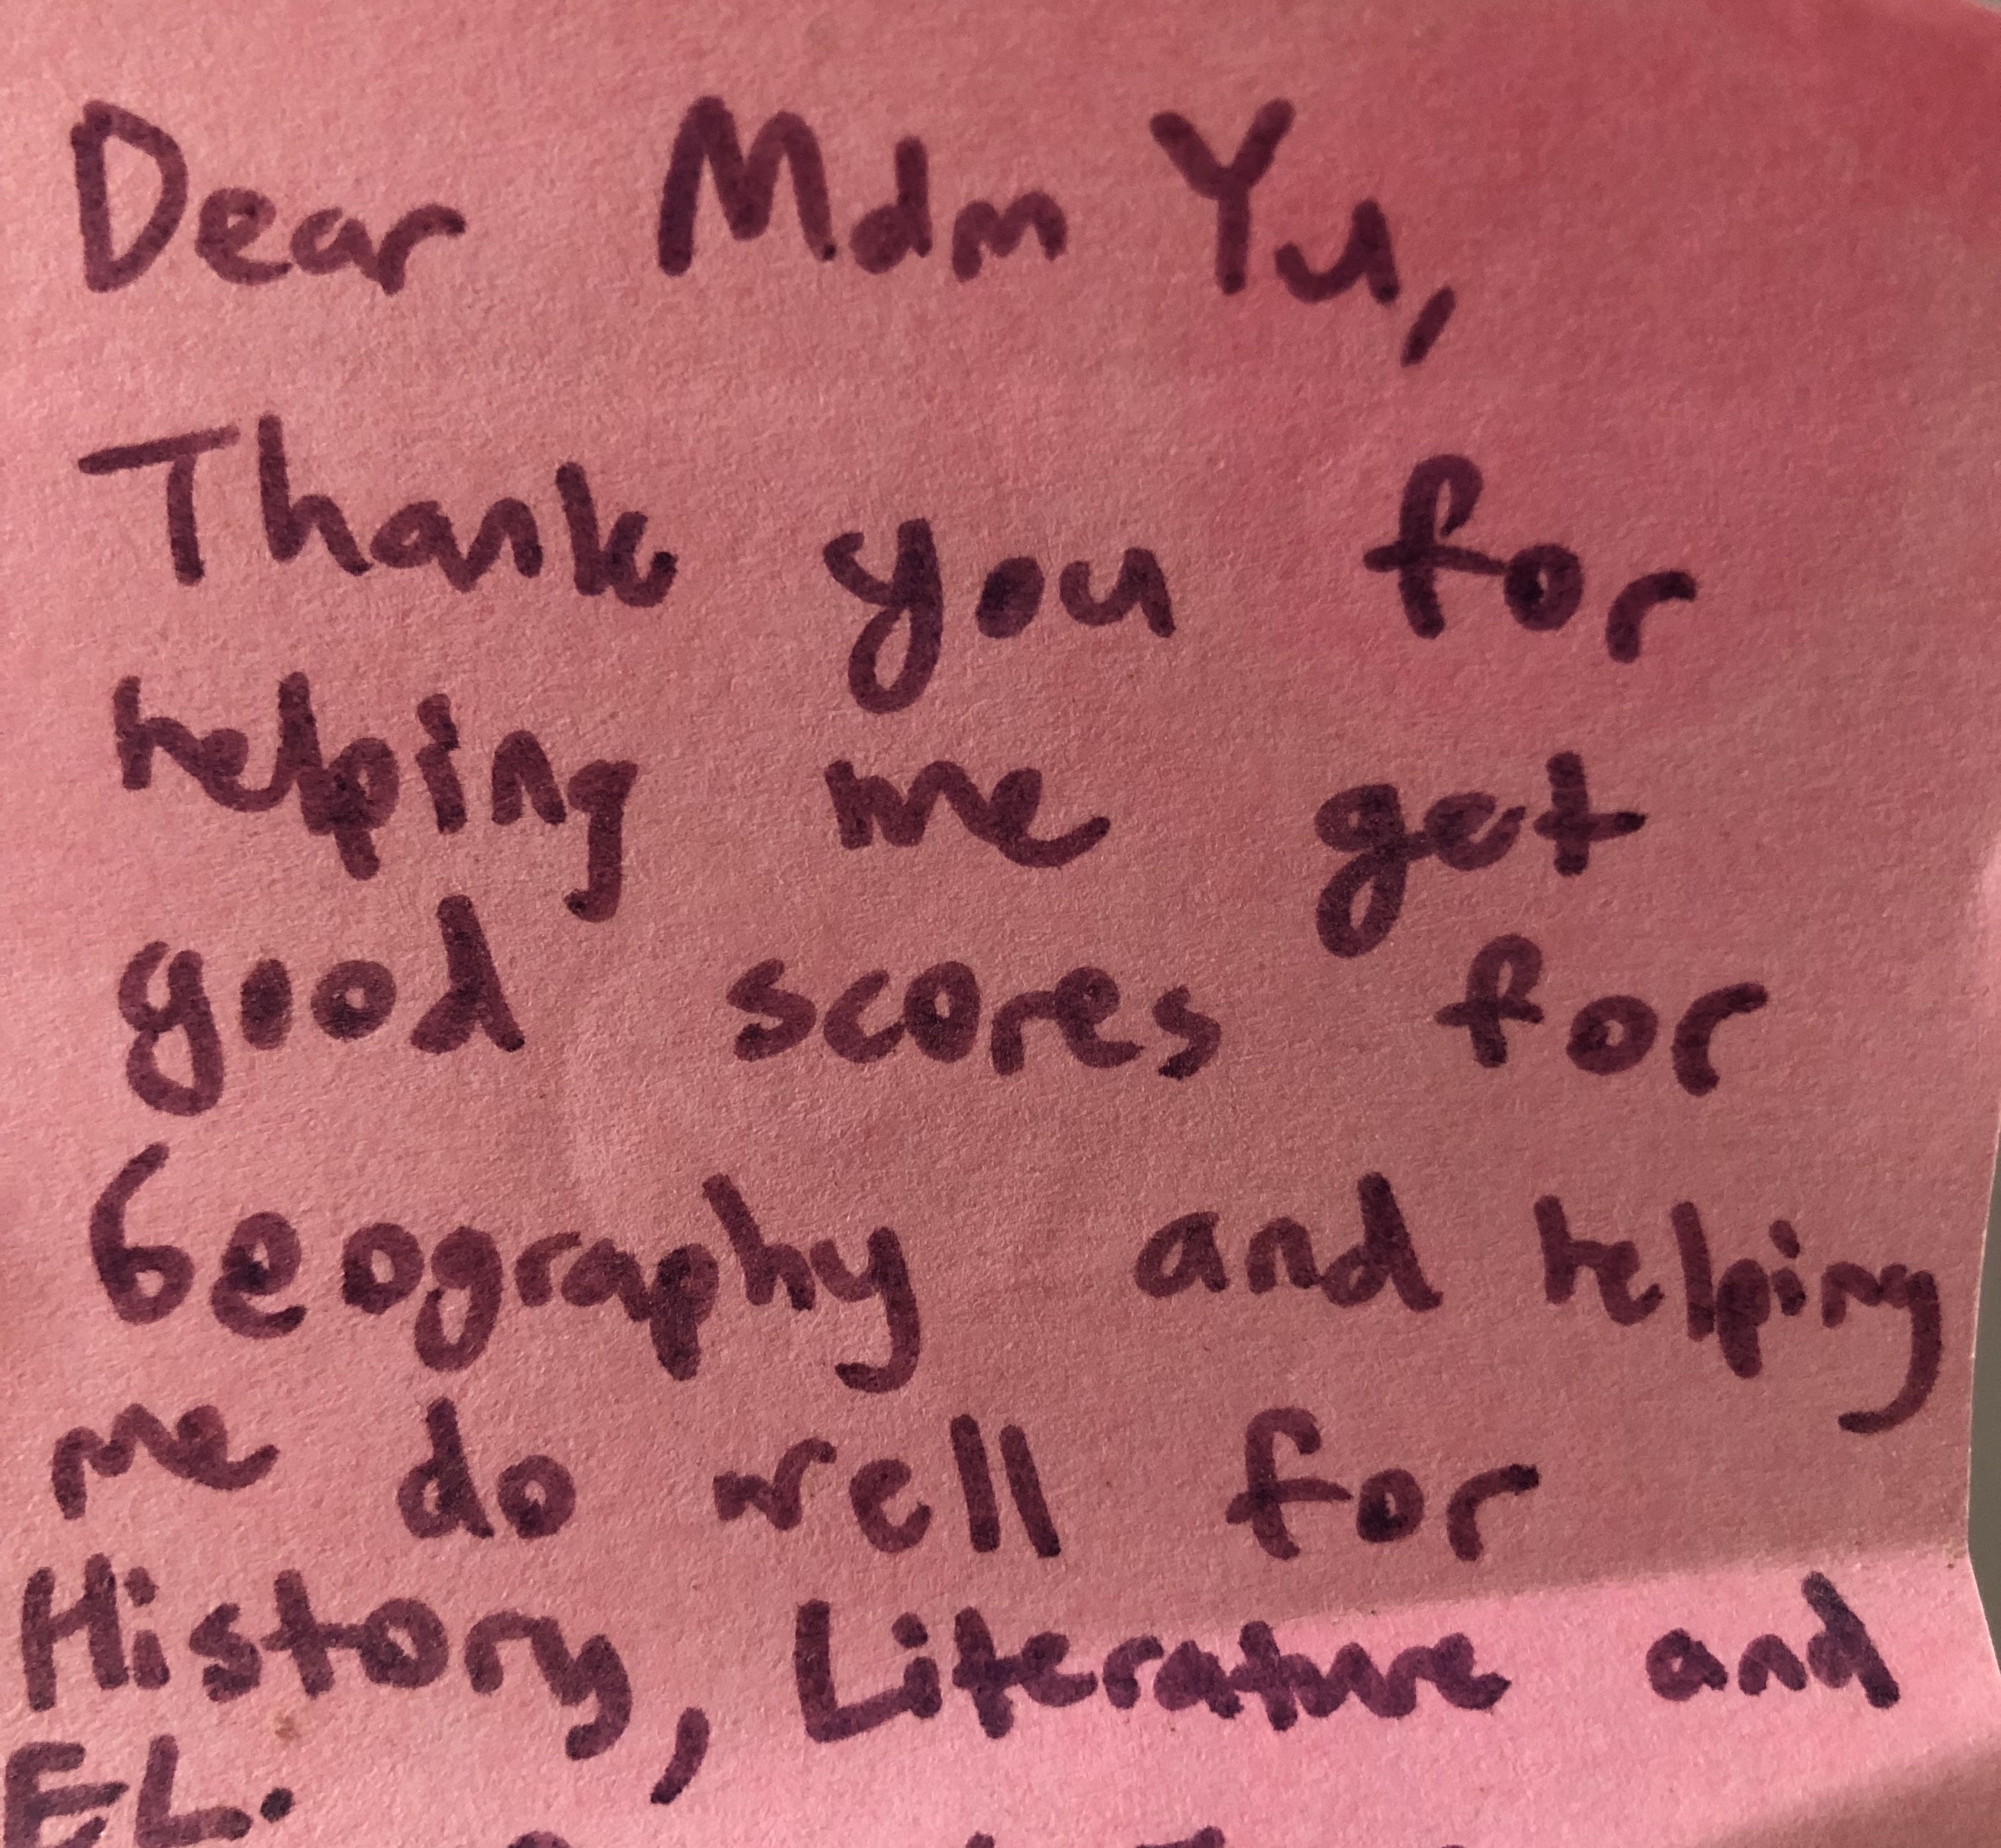 Dear Mdm Yu,
Thank you for
helping me get
good scores for
Geography and helping
me do well for
History, Literature and
EL.